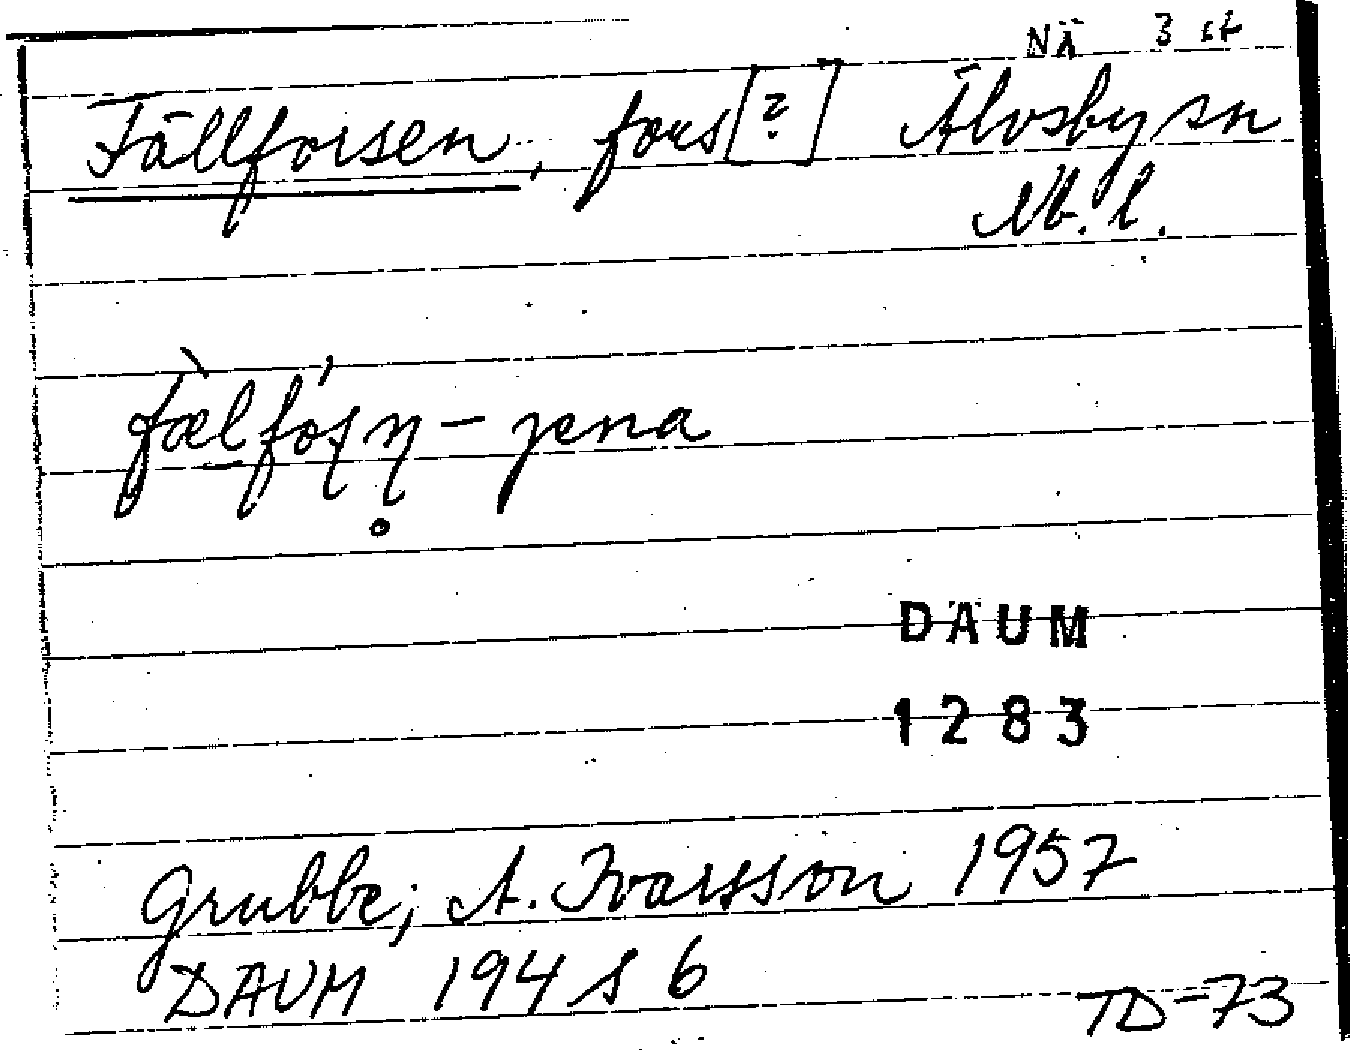 NÄ 3 st
Fällforsen, fors [?] Älvsby sn
Nb. l.
fæ̀lfóʂṇ̥ - jena
DAUM
1283
Grubbe; A. Ivarsson 1957
DAUM 194 s 6
TD-73